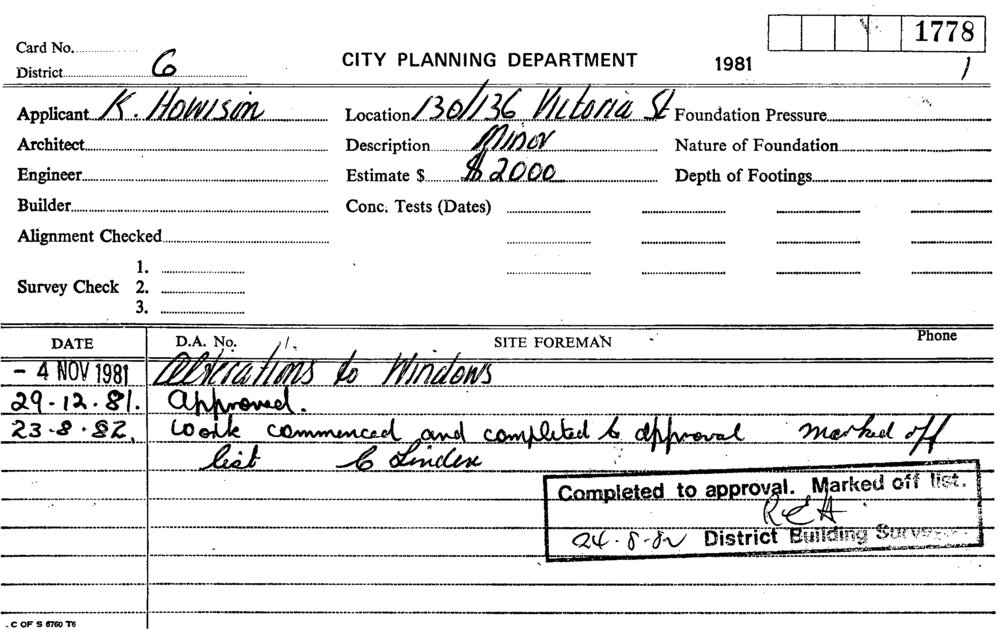 1778
Card No.
CITY PLANNING DEPARTMENT 1981 1
District 6
Applicant K. Howison Location 130/136 Victoria St Foundation Pressure
Architect Description Minor Nature of Foundation
Engineer Estimate $ $2000 Depth of Footings
Builder Conc. Tests (Dates)
Alignment Checked
1.
Survey Check 2.
3.
DATE D.A. No. SITE FOREMAN Phone
- 4 NOV 1981 Alterations to Windows
29.12.81. Approved.
23.8.82. Work commenced and completed to approval marked off
list
Completed to approval. Marked off list.
24-8-82 District Building Surveyor
C OF S 6760 T6